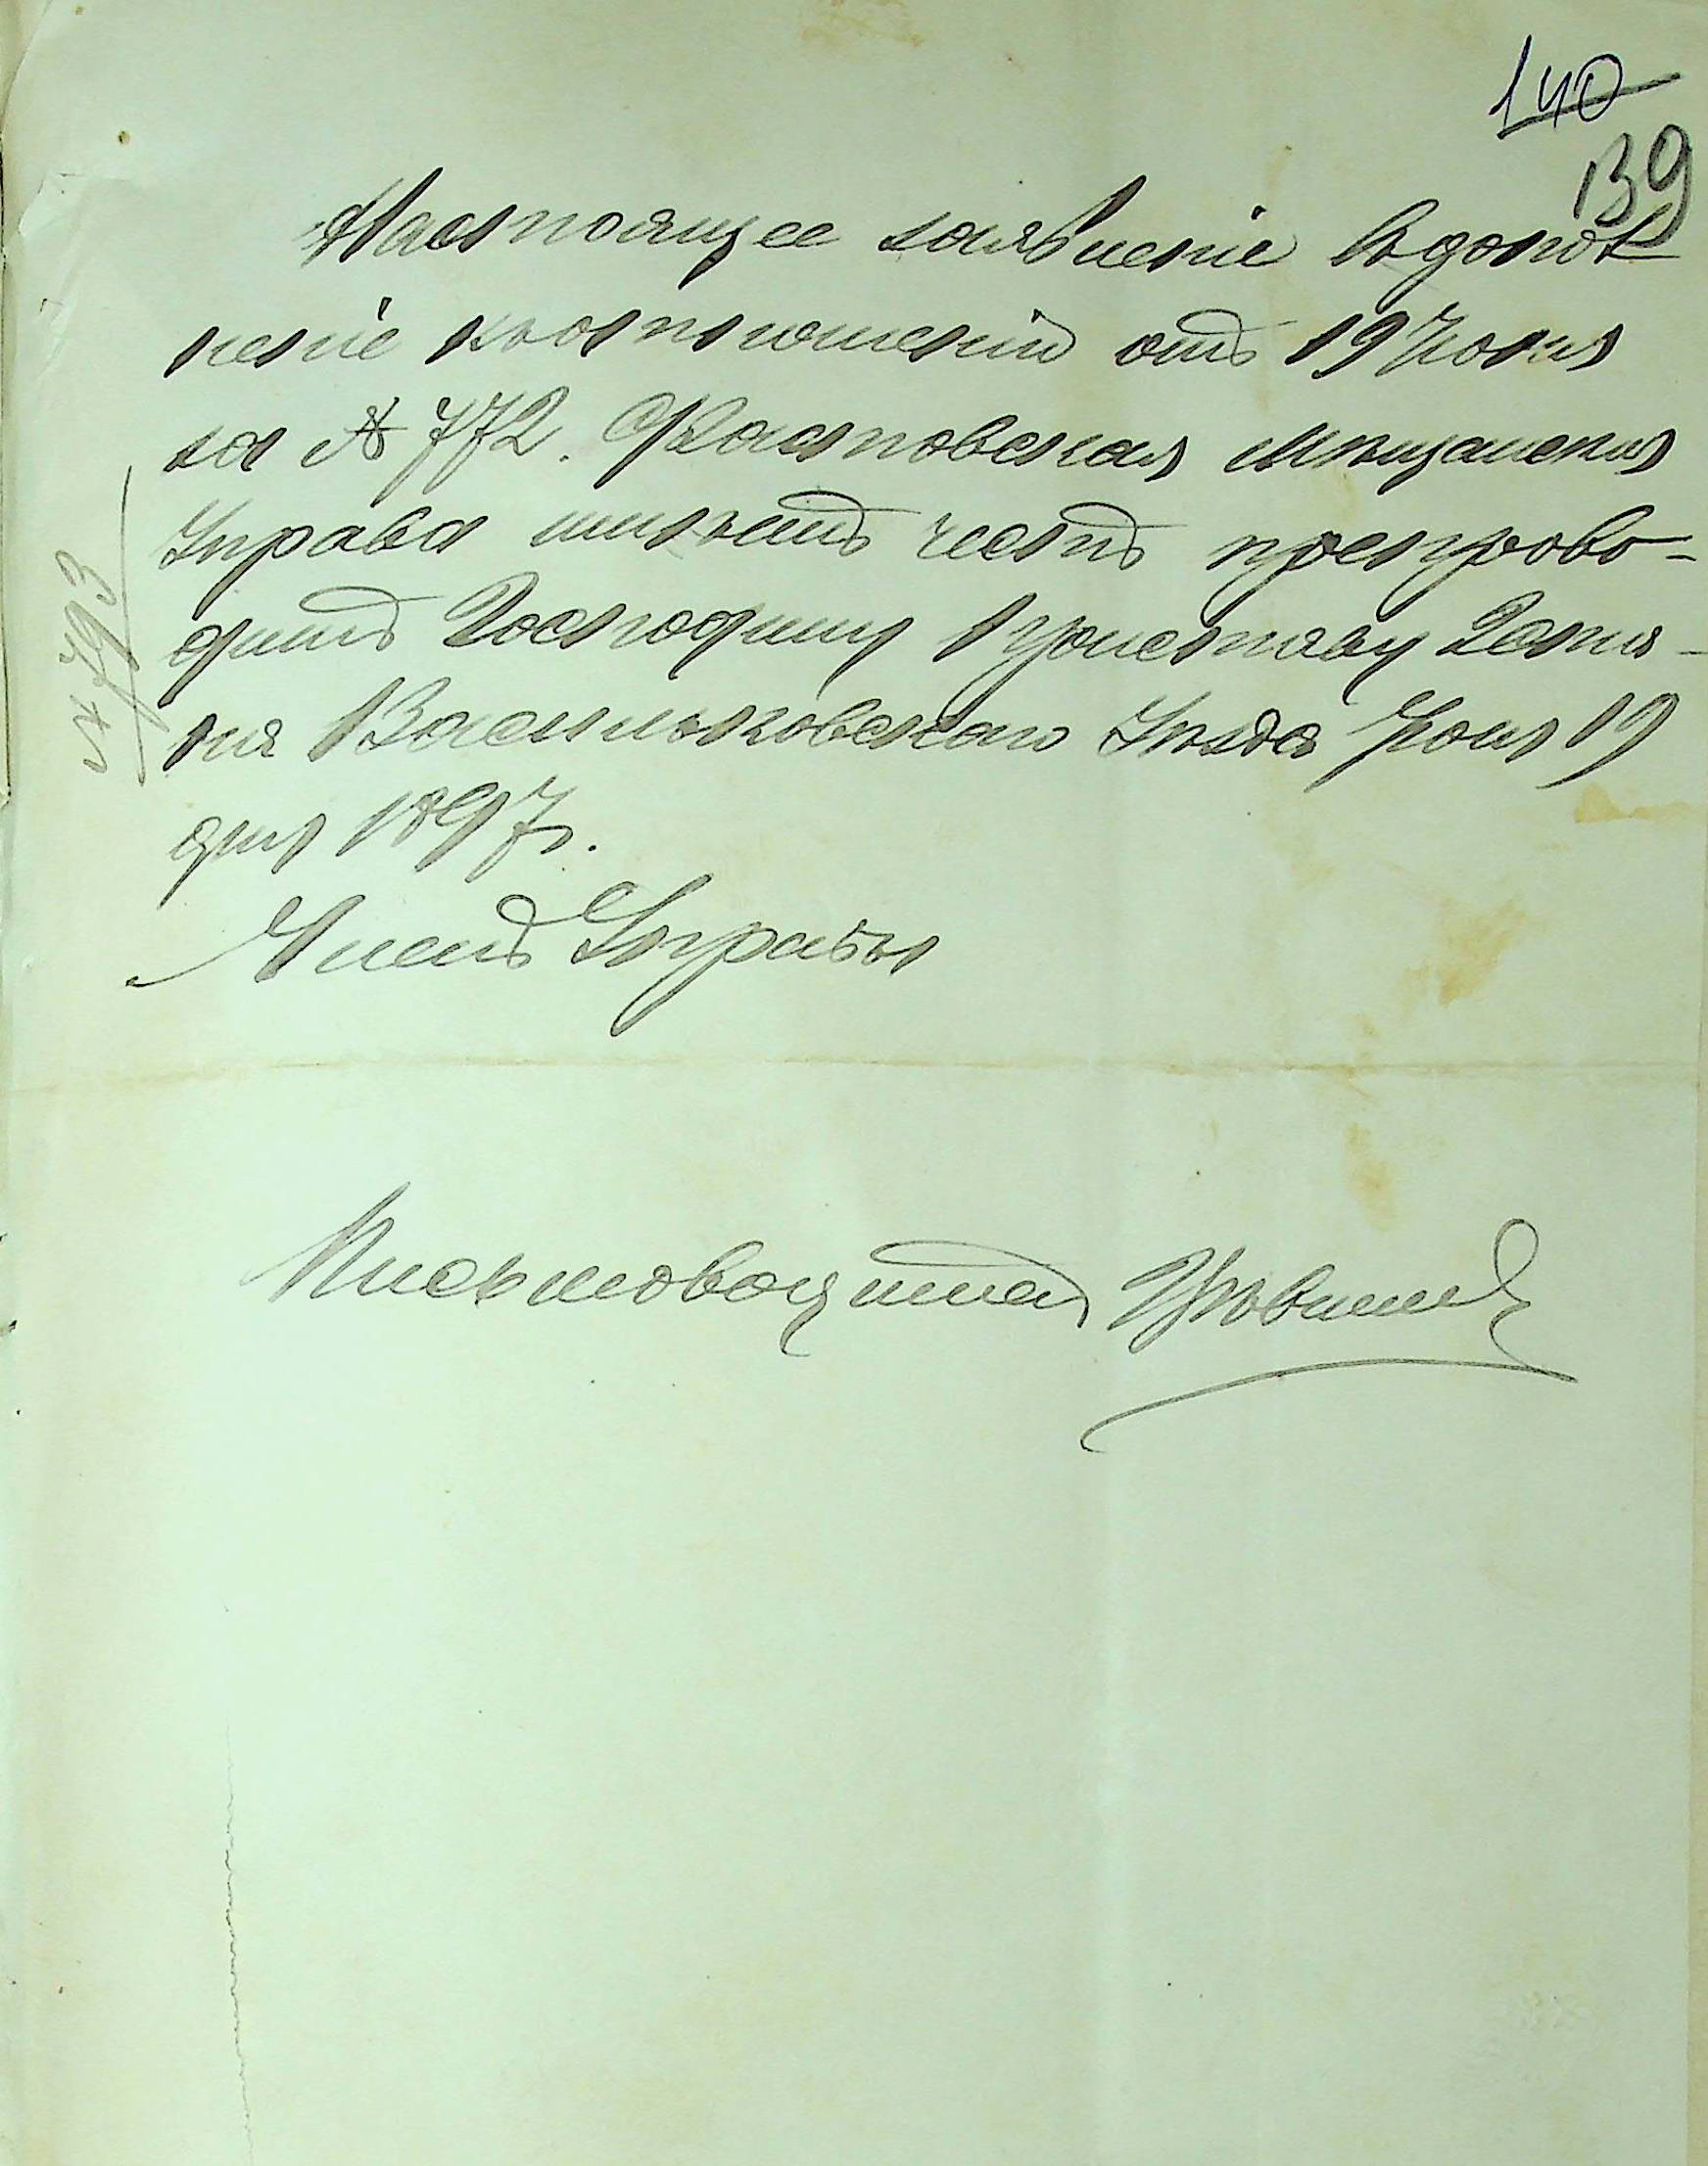 140
139
Настоящее заявленіе въ допол
неніе къ отношенію отъ 19 Іюня
за № 772. Фастовская Мѣщанская
Управа имѣетъ честь препрово-
дить Господину Приставу 2 Стана
Васильковскаго Уѣзда Іюня 19
дня 1897 г.
Членъ Управы
Письмоводитель
№ 793